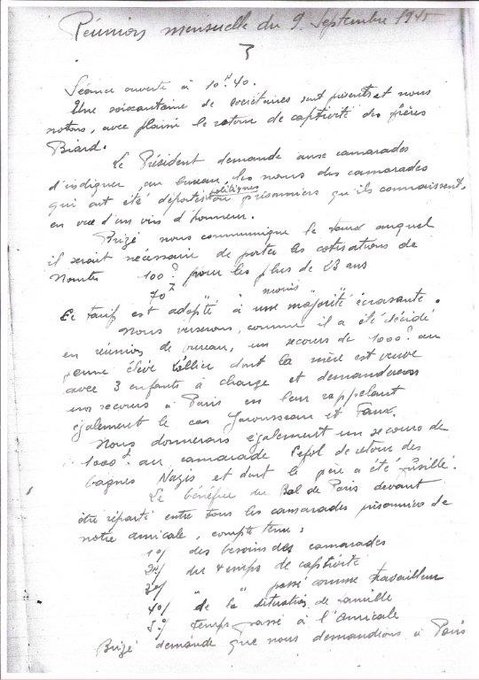 Réunion mensuelle du 9 Septembre 1945
Séance ouverte à 10H40.
Une soixantaine de sociétaires sont présents et nous
notons, avec plaisir le retour de captivité des frères
Biard.
Le Président demande aux camarades
d'indiquer au bureau, les noms des camarades
qui ont été déportés politiques ou prisonniers qu'ils connaissent,
en vue d'un vin d'honneur.
Brizé nous communique le taux auquel
il serait nécessaire de porter les cotisations de
100 pour les plus de 18 ans
70 " moins "
Ce tarif est adopté à une majorité écrasante.
Nous verserons, comme il a été décidé
en réunion de bureau, un secours de 1000 au
jeune élève dont la mère est veuve
avec 3 enfants à charge et demanderons
un secours à Paris en leur rappelant
également le cas et
Nous donnerons également un secours de
1000 au camarade de retour des
bagnes Nazis et dont le père a été fusillé.
Le bénéfice du Bal de Paris devant
être réparti entre tous les camarades prisonniers de
notre amicale, compte tenu:
1°/ des besoins des camarades
2°/ du temps de captivité
3°/ " " passé comme travailleur
4°/ de la situation de famille
5°/ temps passé à l'Amicale
Brizé demande que nous demandions à Paris